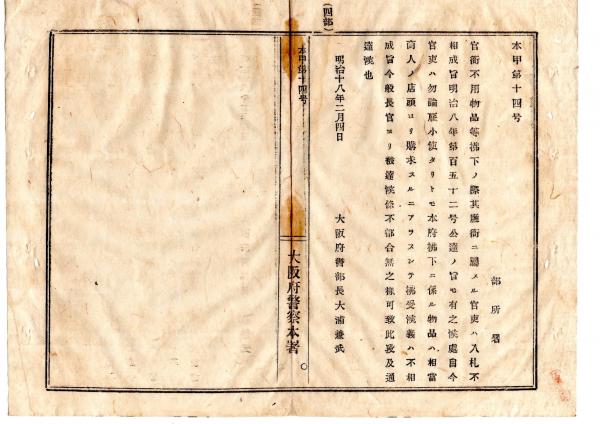 本甲第十四号
部所署
官衙不用物品等拂下ノ際其廳衙ニ屬スル官吏ハ入札不
相成旨明治八年第百五十二号公達ノ旨モ有之候處自今
官吏ハ勿論雇小使タリトモ本府拂下ニ係ル物品ハ相當
商人ノ店頭ヨリ購求スルニアラスシテ拂受候義ハ不相
成旨今般長官ヨリ被達候條不都合無之様可致此段及通
達候也
明治十八年二月四日
大阪府警部長大浦兼武
(四部)
本甲第十四号
大阪府警察本署